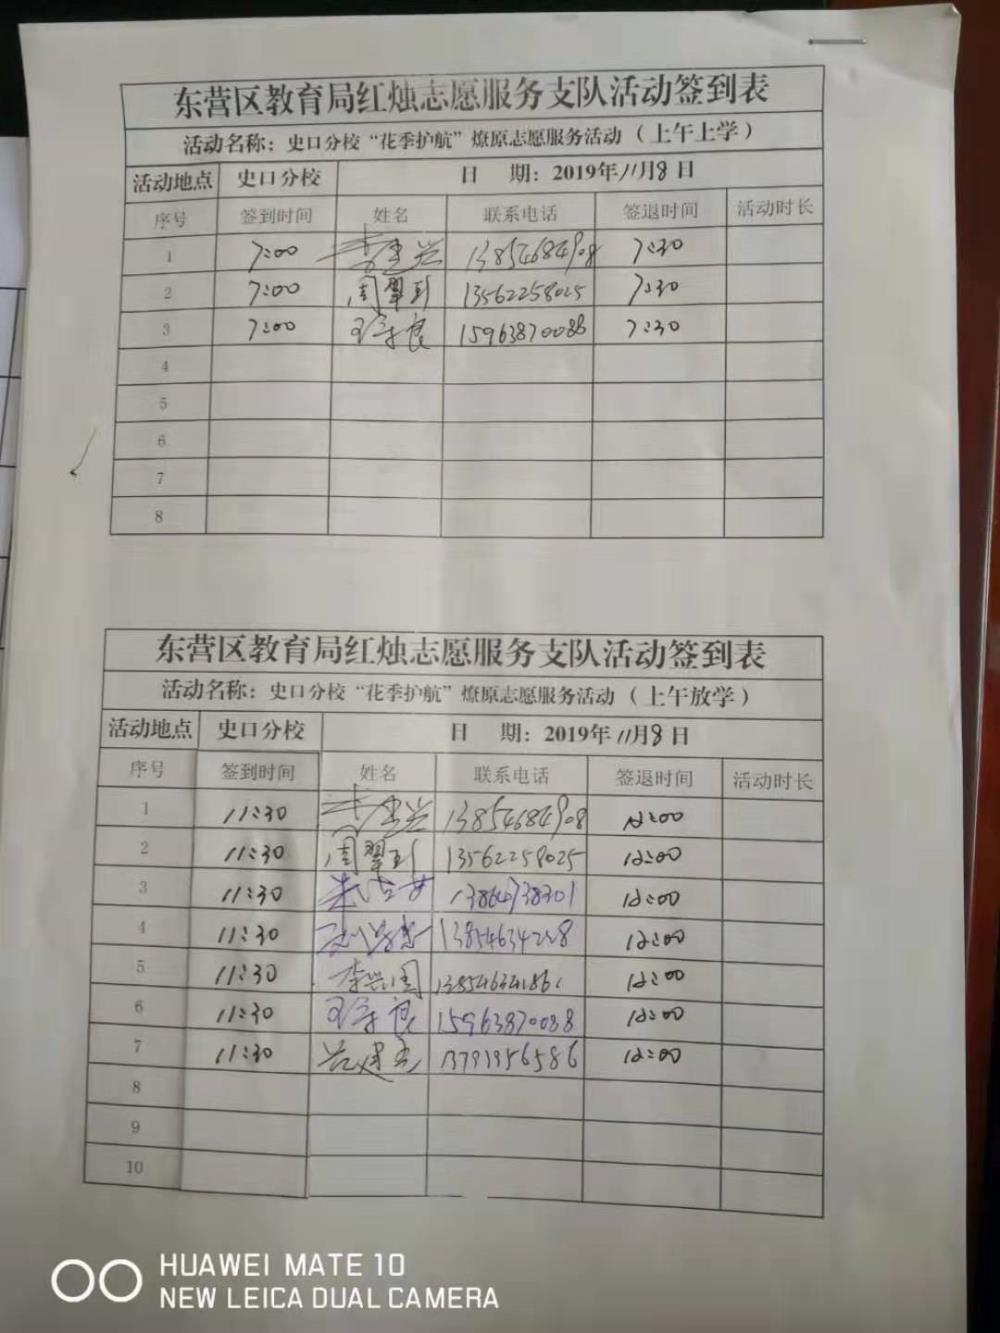 东营区教育局红烛志愿服务支队活动签到表
活动名称：史口分校“花季护航”燎原志愿服务活动（上午上学）
活动地点 史口分校 日 期：2019年11月8日
序号 签到时间 姓名 联系电话 签退时间 活动时长
1 7:00 13854684908 7:30
2 7:00 13562258025 7:30
3 7:00 15963870088 7:30
4
5
6
7
8
东营区教育局红烛志愿服务支队活动签到表
活动名称：史口分校“花季护航”燎原志愿服务活动（上午放学）
活动地点 史口分校 日 期：2019年11月8日
序号 签到时间 姓名 联系电话 签退时间 活动时长
1 11:30 13854684908 12:00
2 11:30 13562258025 12:00
3 11:30 12:00
4 11:30 12:00
5 11:30 李兴国 12:00
6 11:30 15963870088 12:00
7 11:30 12:00
8
9
10
HUAWEI MATE 10
NEW LEICA DUAL CAMERA